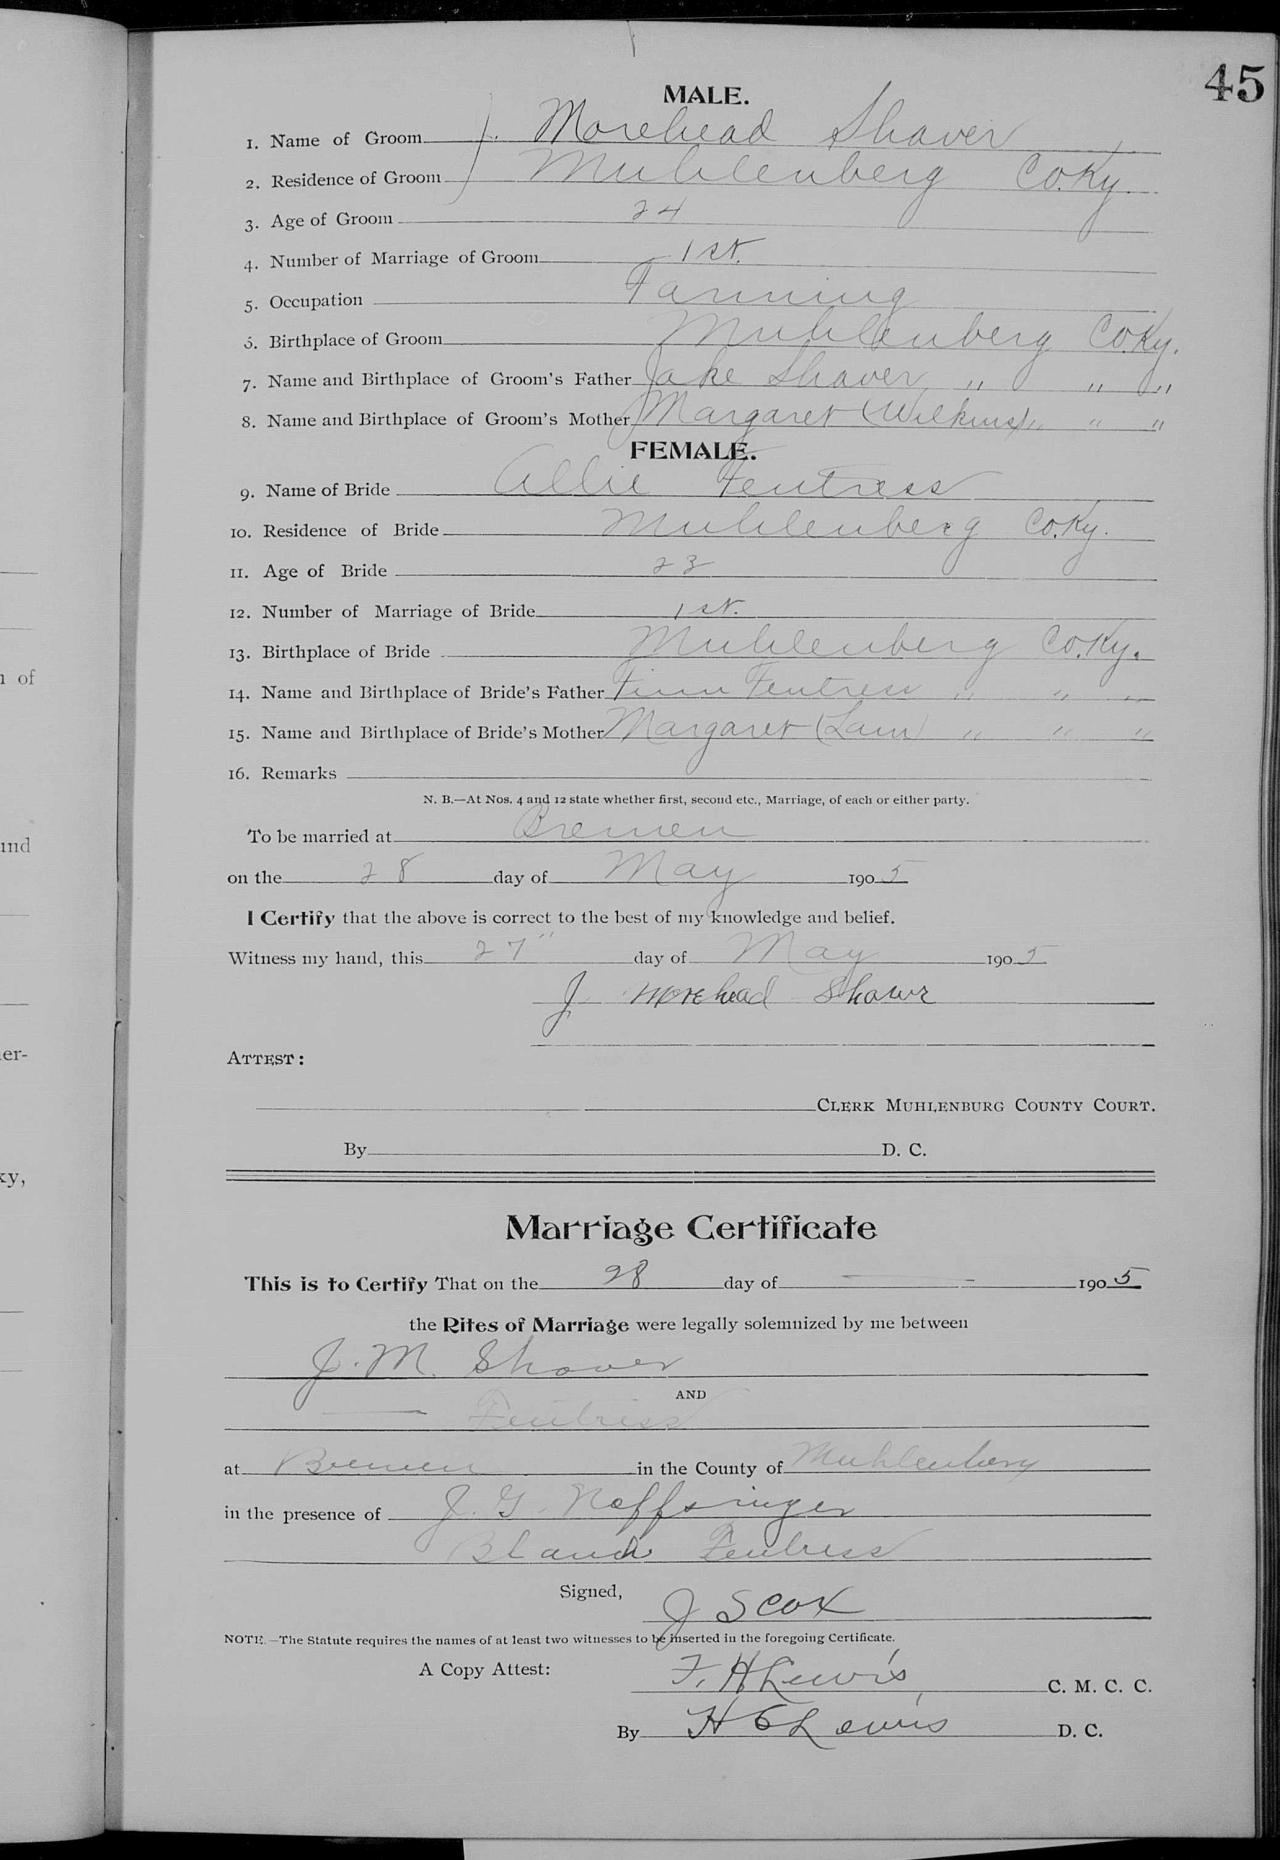 45
MALE.
1. Name of Groom J. Morehead Shaver
2. Residence of Groom Muhlenberg Co. Ky.
3. Age of Groom 24
4. Number of Marriage of Groom 1st.
5. Occupation
6. Birthplace of Groom Muhlenberg Co. Ky.
7. Name and Birthplace of Groom's Father Jake Shaver " " "
8. Name and Birthplace of Groom's Mother Margaret (Wilkins) " " "
FEMALE.
9. Name of Bride Allie Fentress
10. Residence of Bride Muhlenberg Co. Ky.
11. Age of Bride 23
12. Number of Marriage of Bride 1st.
13. Birthplace of Bride Muhlenberg Co. Ky.
14. Name and Birthplace of Bride's Father Finn Fentress " " "
15. Name and Birthplace of Bride's Mother Margaret (Lam) " " "
16. Remarks
N. B.—At Nos. 4 and 12 state whether first, second etc., Marriage, of each or either party.
To be married at Bremen
on the 28 day of May 1905
I Certify that the above is correct to the best of my knowledge and belief.
Witness my hand, this 27" day of May 1905
J. Morehead Shaver
ATTEST:
CLERK MUHLENBURG COUNTY COURT.
By D. C.
Marriage Certificate
This is to Certify That on the 28 day of — 1905
the Rites of Marriage were legally solemnized by me between
J. M. Shaver
AND
— Fentress
at Bremen in the County of Muhlenberg
in the presence of J. G. Noffsinger
Blanch Fentress
Signed, J S Cox
NOTE.—The Statute requires the names of at least two witnesses to be inserted in the foregoing Certificate.
A Copy Attest: T. H Lewis, C. M. C. C.
By H C Lewis D. C.